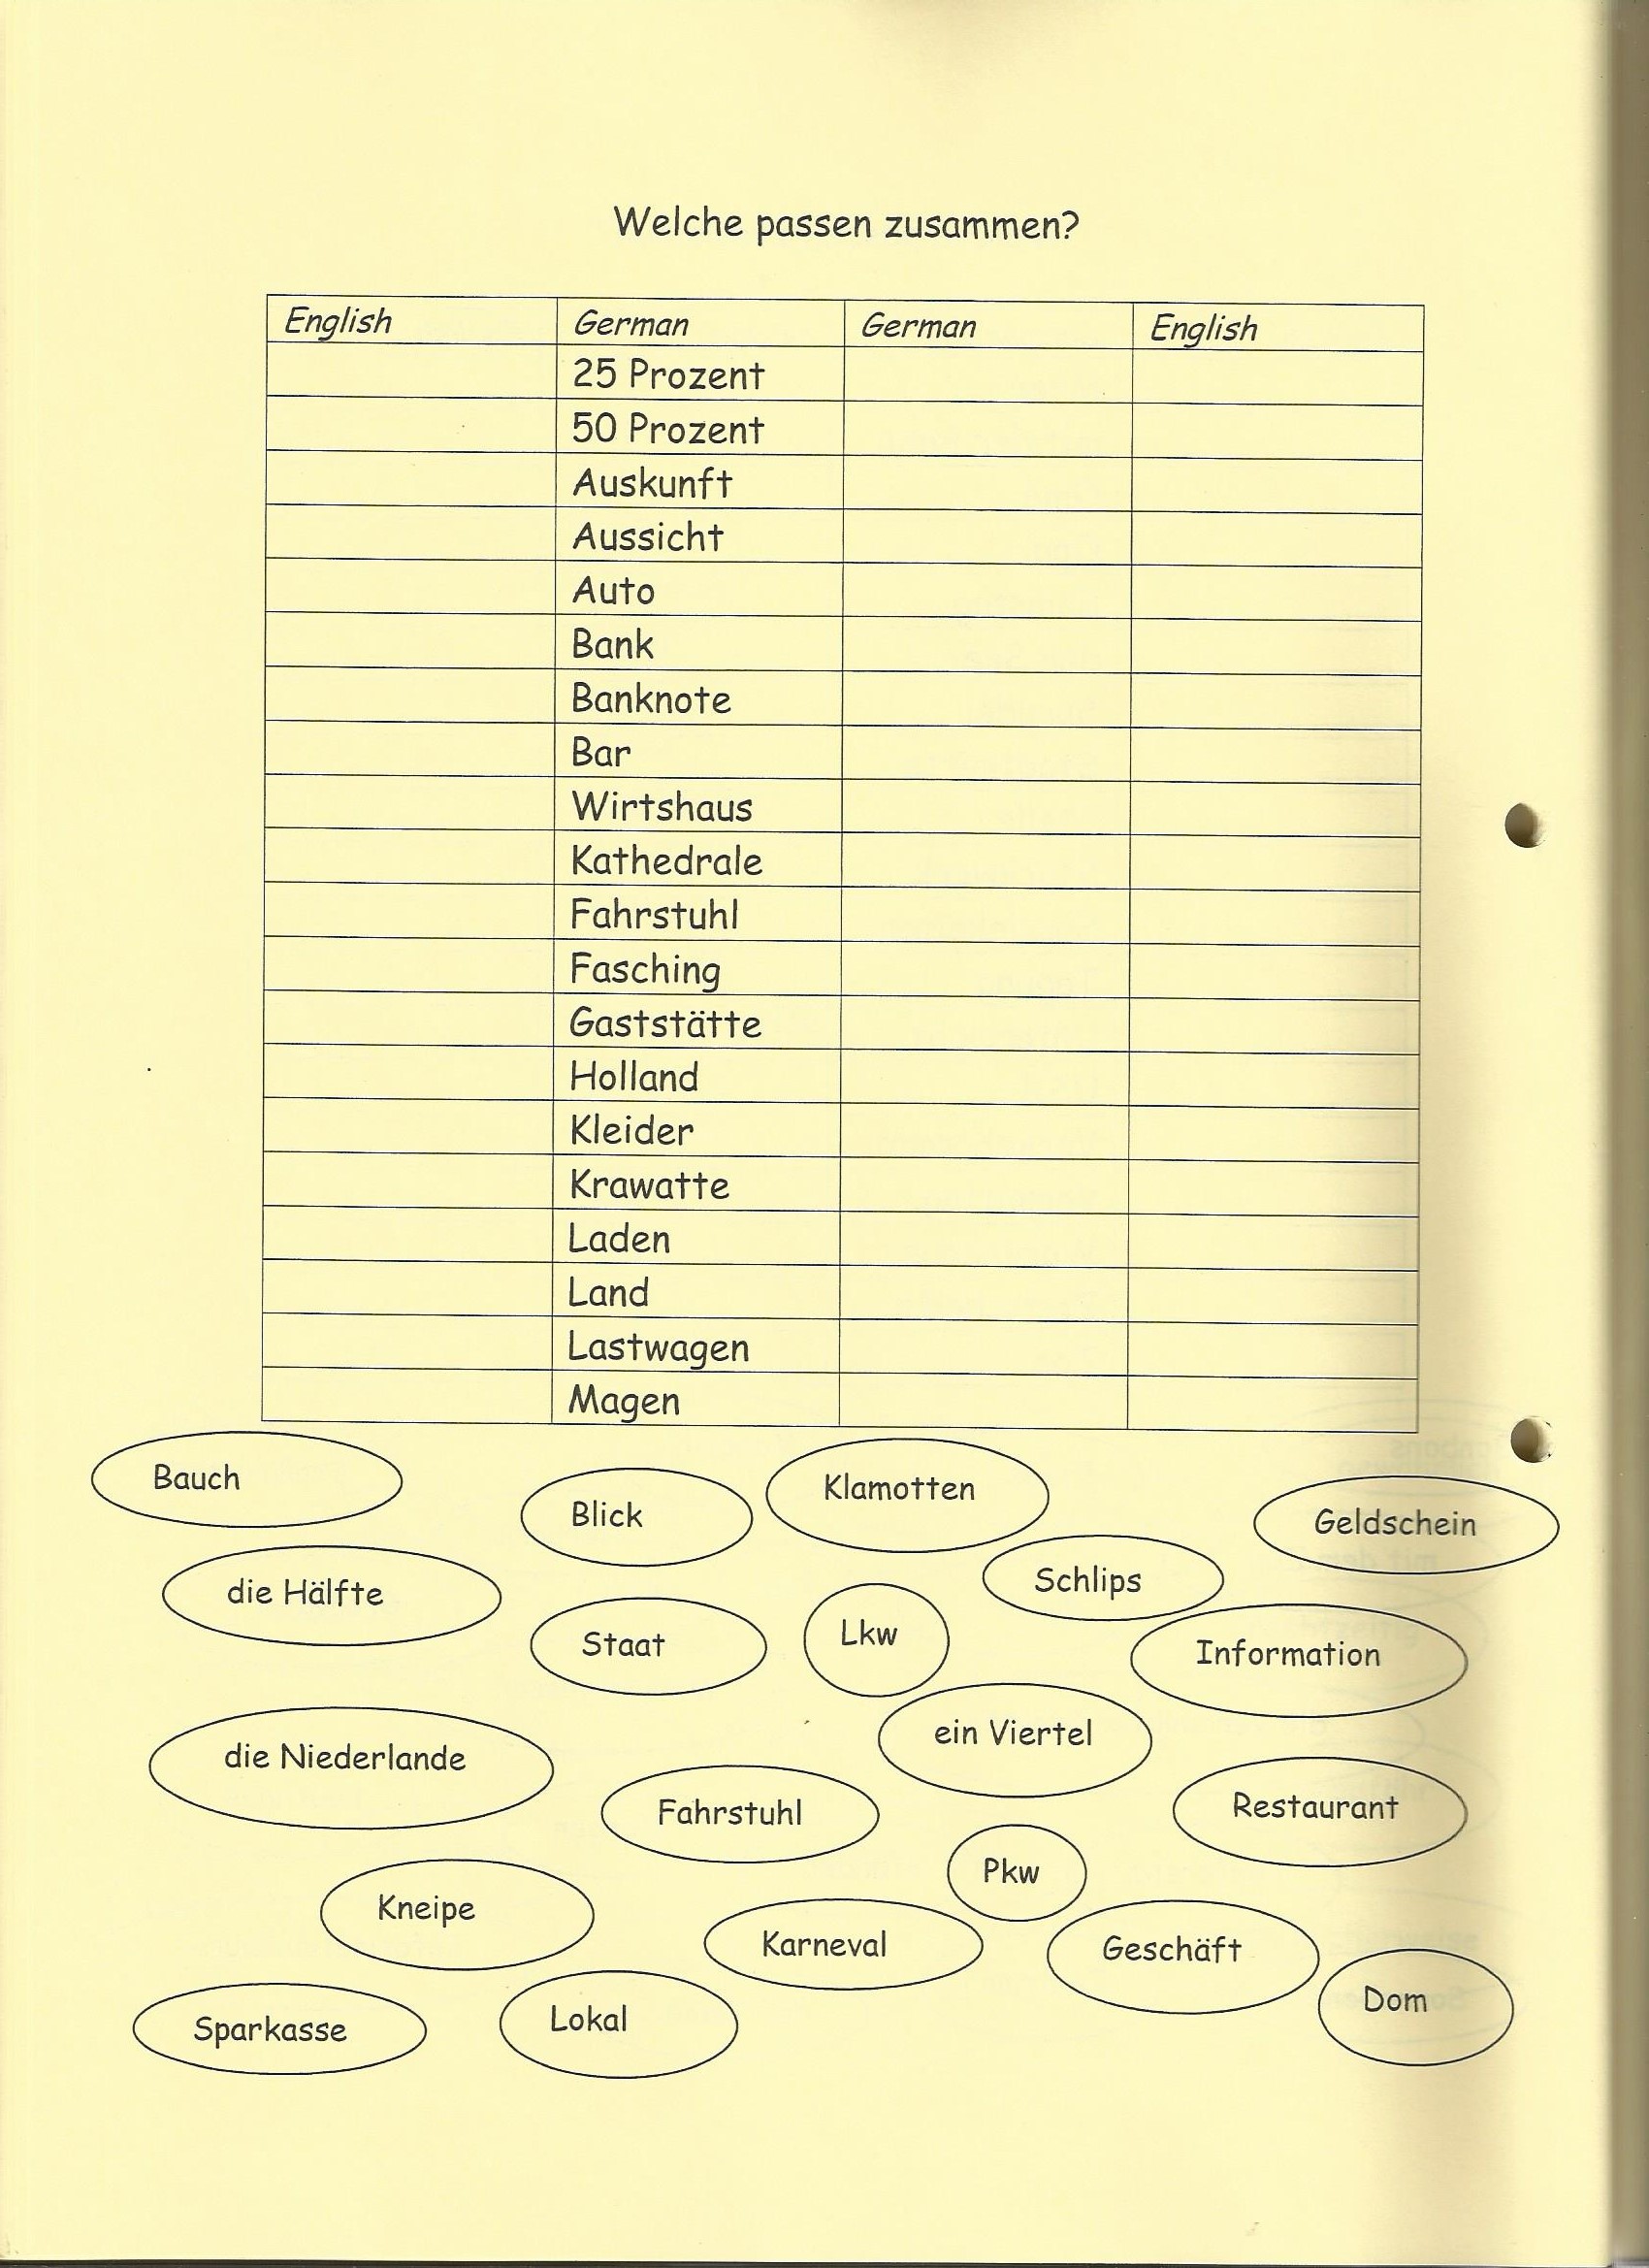 Welche passen zusammen?
English German German English
25 Prozent
50 Prozent
Auskunft
Aussicht
Auto
Bank
Banknote
Bar
Wirtshaus
Kathedrale
Fahrstuhl
Fasching
Gaststätte
Holland
Kleider
Krawatte
Laden
Land
Lastwagen
Magen
Bauch
Blick
Klamotten
Geldschein
die Hälfte
Schlips
Staat
Lkw
Information
ein Viertel
die Niederlande
Fahrstuhl
Restaurant
Pkw
Kneipe
Karneval
Geschäft
Dom
Sparkasse
Lokal